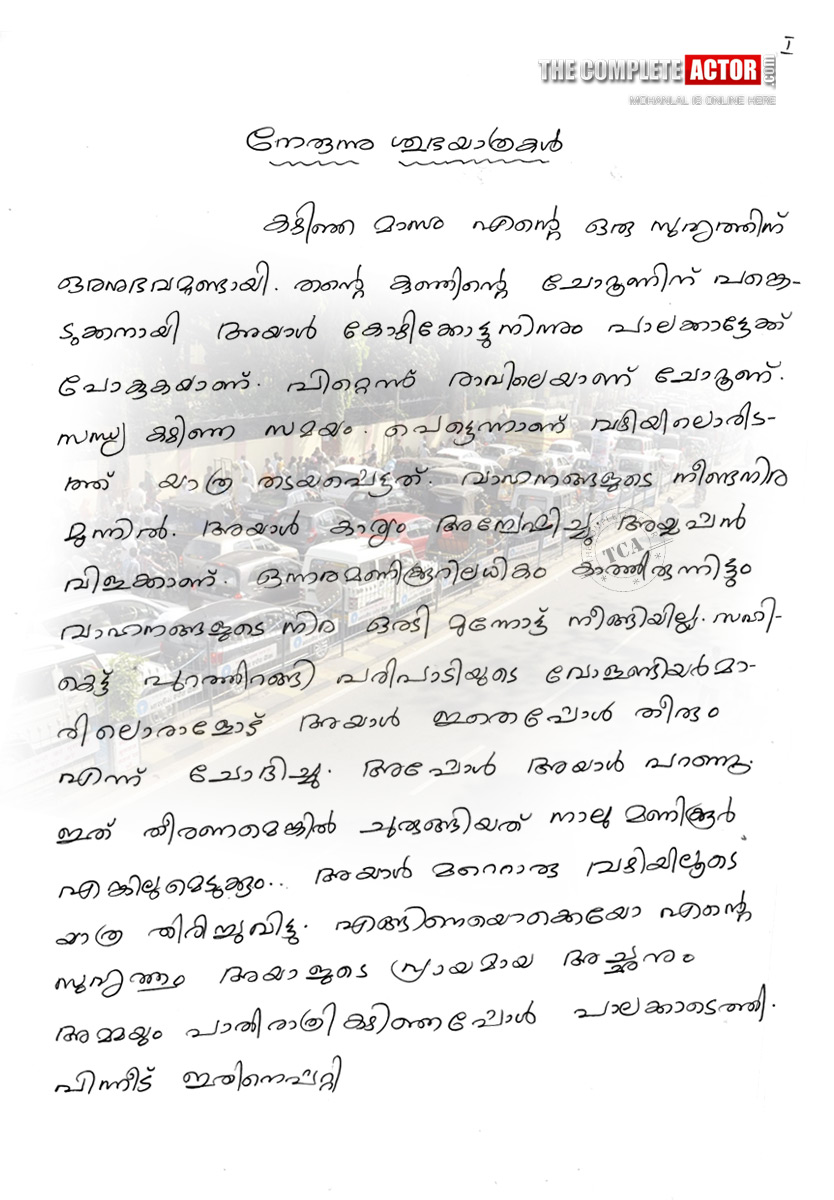 I
THE COMPLETE ACTOR .COM
MOHANLAL IS ONLINE HERE
നേരുന്നു ശുഭയാത്രകൾ
കഴിഞ്ഞ മാസം എന്റെ ഒരു സുഹൃത്തിന്
ഒരനുഭവമുണ്ടായി. തന്റെ കുഞ്ഞിന്റെ ചോറൂണിന് പങ്കെ-
ടുക്കാനായി അയാൾ കോഴിക്കോട്ടു നിന്നും പാലക്കാട്ടേക്ക്
പോകുകയാണ്. പിറ്റെന്ന് രാവിലെയാണ് ചോറൂണ്.
സന്ധ്യ കഴിഞ്ഞ സമയം. പെട്ടെന്നാണ് വഴിയിലൊരിട-
ത്ത് യാത്ര തടയപ്പെട്ടത്. വാഹനങ്ങളുടെ നീണ്ടനിര
മുന്നിൽ. അയാൾ കാര്യം അന്വേഷിച്ചു. അയ്യപ്പൻ
വിളക്കാണ്. ഒന്നാരമണിക്കൂറിലധികം കാത്തിരുന്നിട്ടും
വാഹനങ്ങളുടെ നിര ഒരടി മുന്നോട്ട് നീങ്ങിയില്ല. സഹി-
കെട്ട് പുറത്തിറങ്ങി പരിപാടിയുടെ വോളണ്ടിയർമാ-
രിലൊരാളോട് അയാൾ ഇതെപ്പോൾ തീരും
എന്ന് ചോദിച്ചു. അപ്പോൾ അയാൾ പറഞ്ഞു.
ഇത് തീരണമെങ്കിൽ ചുരുങ്ങിയത് നാലു മണിക്കൂർ
എങ്കിലുമെടുക്കും.. അയാൾ മറ്റൊരു വഴിയിലൂടെ
യാത്ര തിരിച്ചുവിട്ടു. എങ്ങിണയൊക്കെയോ എന്റെ
സുഹൃത്തും അയാളുടെ പ്രായമായ അച്ഛനും
അമ്മയും പാതിരാത്രി കഴിഞ്ഞപ്പോൾ പാലക്കാടെത്തി.
പിന്നീട് ഇതിനെപ്പറ്റി
TCA